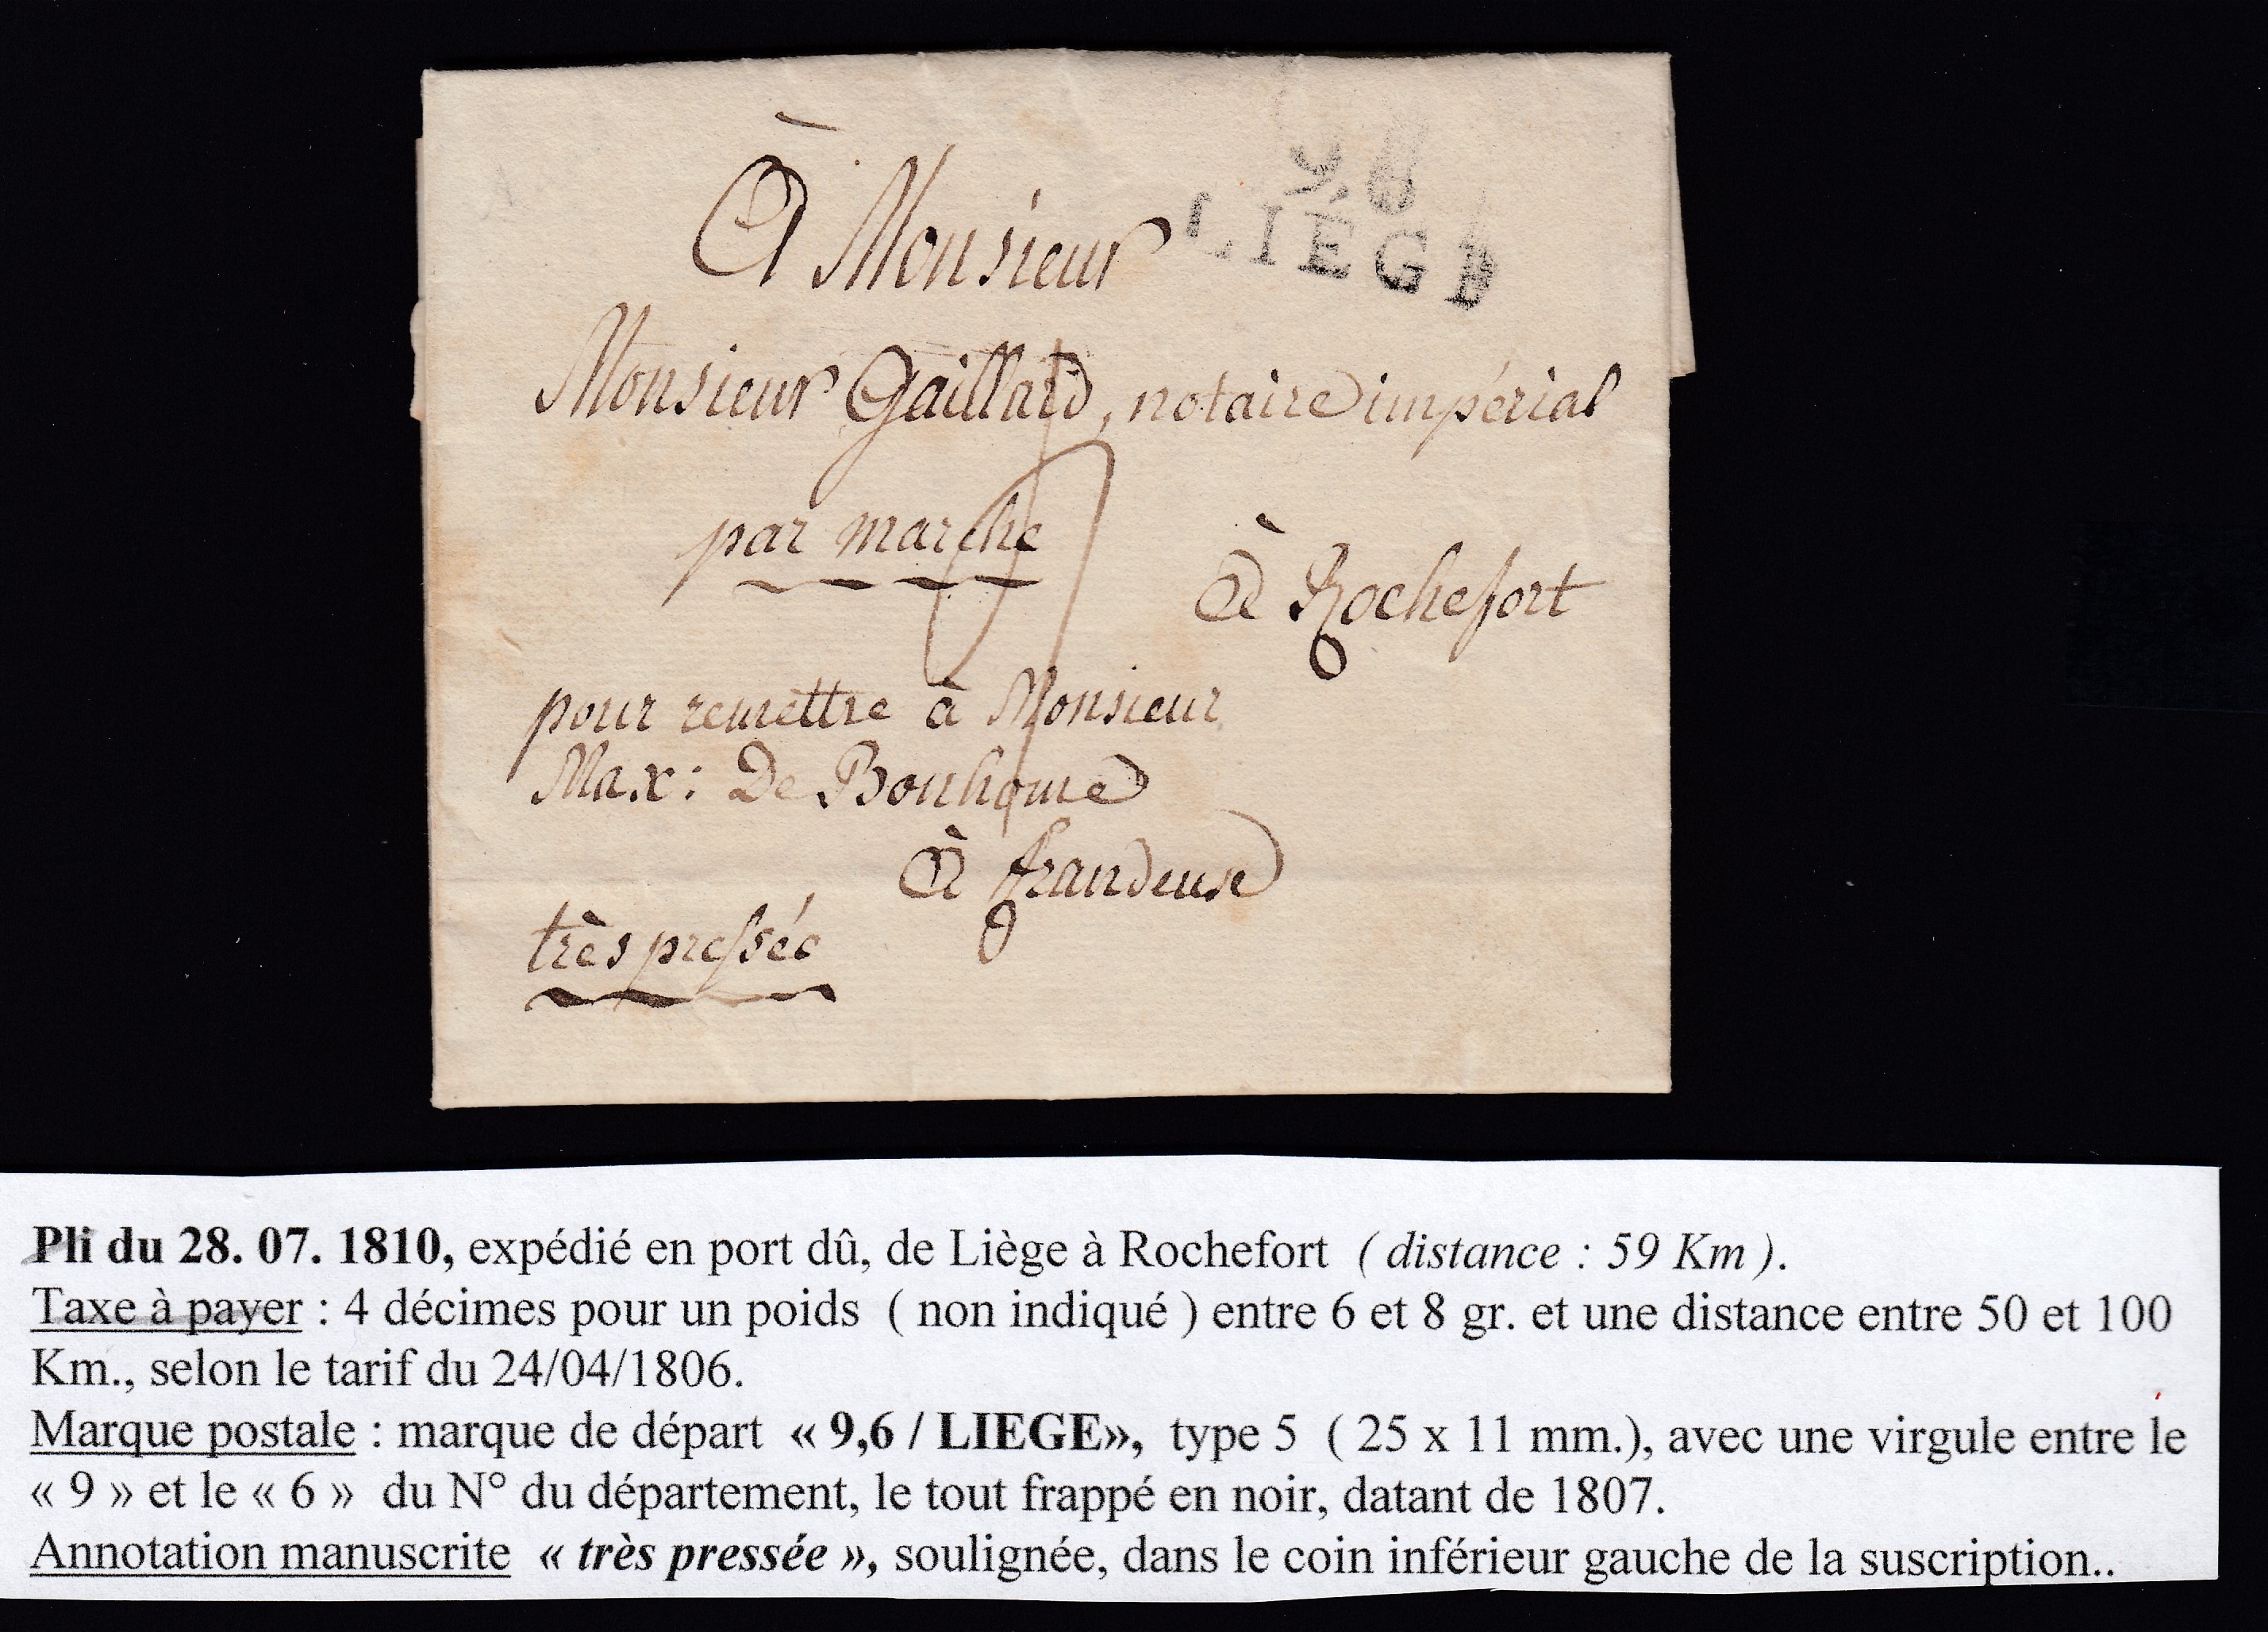 À Monsieur
9,6
LIÈGE
Monsieur Gaillard, notaire impérial
par marche
à Rochefort
pour remettre à Monsieur
Max: De Bonhome
à frandeux
très pressée
Pli du 28. 07. 1810, expédié en port dû, de Liège à Rochefort ( distance : 59 Km ).
Taxe à payer : 4 décimes pour un poids ( non indiqué ) entre 6 et 8 gr. et une distance entre 50 et 100
Km., selon le tarif du 24/04/1806.
Marque postale : marque de départ « 9,6 / LIEGE», type 5 ( 25 x 11 mm.), avec une virgule entre le
« 9 » et le « 6 » du N° du département, le tout frappé en noir, datant de 1807.
Annotation manuscrite « très pressée », soulignée, dans le coin inférieur gauche de la suscription..